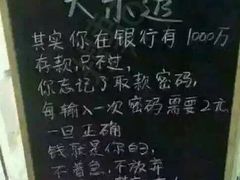 大乐透
其实你在银行有1000万
存款,只不过,
你忘记了取款密码,
每输入一次密码需要2元.
一旦正确
钱就是你的,
不着急,不放弃